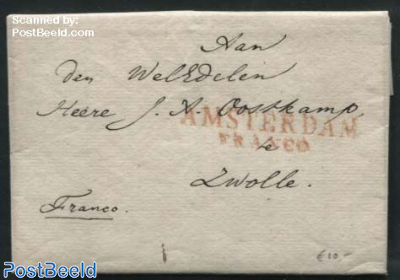 Scanned by:
PostBeeld.com
Aan
den WelEdelen
Heere J. A. Oostkamp
AMSTERDAM
FRANCO
te
Zwolle.
Franco.
€10-
PostBeeld
PostBeeld